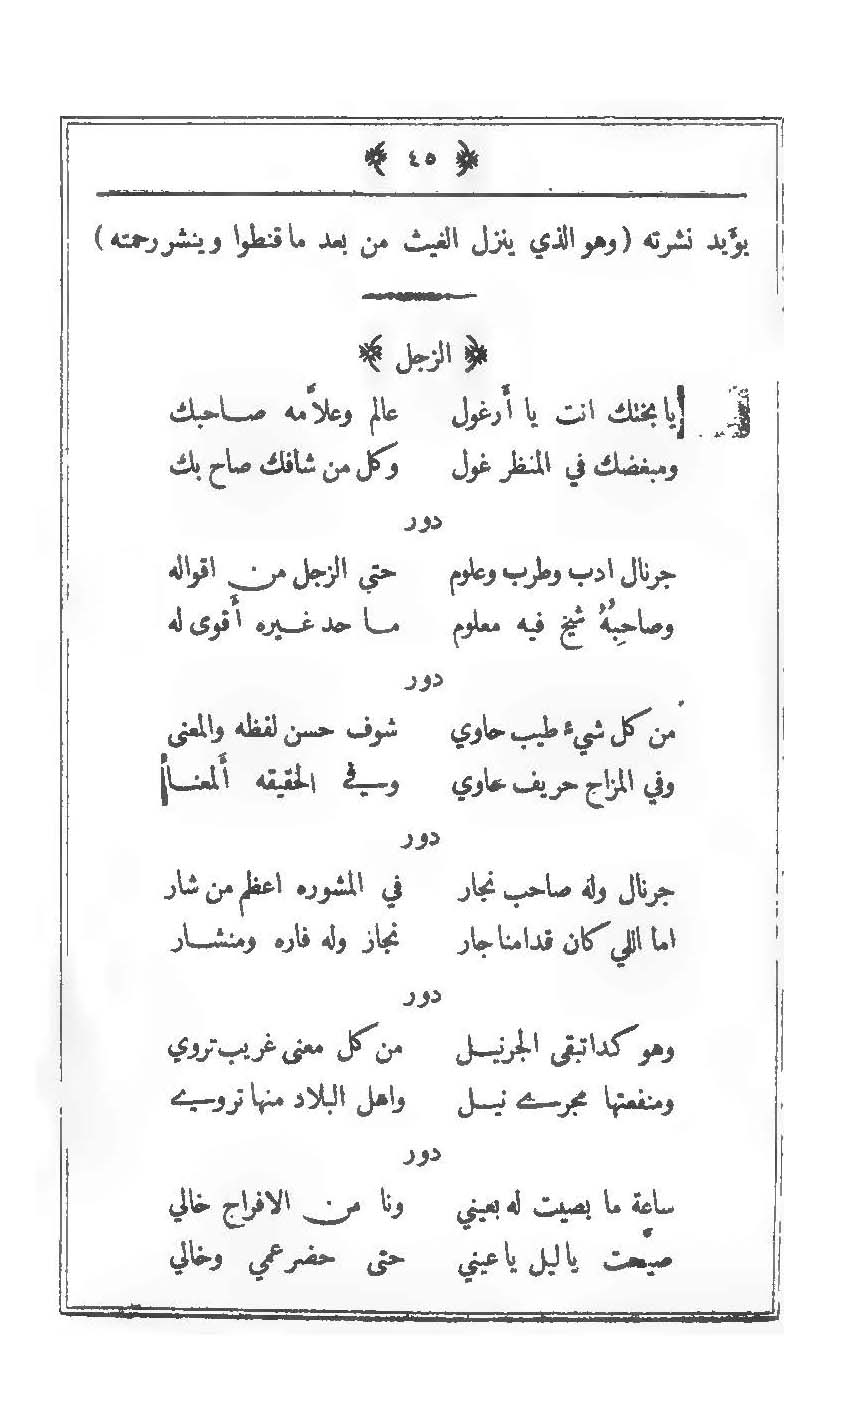 ﴿ ٤٥ ﴾
يؤَيد نشرته (وهو الذي ينزل الغيث من بعد ما قنطوا وينشر رحمته)
﴿ الزجل ﴾
يا بختك انت يا أَرغول عالم وعلاَّمه صاحبك
ومبغضك في المنظر غول وكل من شافك صاح بك
دور
جرنال ادب وطرب وعلوم حتي الزجل من اقواله
وصاحبِهُ شيخ فيه معلوم ما حد غيره أَقوى له
دور
من كل شيء طيب حاوي شوف حسن لفظه والمعنى
وفي المزاج حريف عاوي وفي الحقيقه أَلمعنا
دور
جرنال وله صاحب نجار في المشوره اعظم من شار
اما اللي كان قدامنا جار نجاز وله فاره ومنشار
دور
وهو كدا تبقى الجرنيل من كل معنى غريب تروي
ومنفعتها مجرے نيل واهل البلاد منها تروے
دور
ساعة ما بصيت له بعيني ونا من الافراج خالي
صيَّحت يا ليل يا عيني حتى حضر عمي وخالي